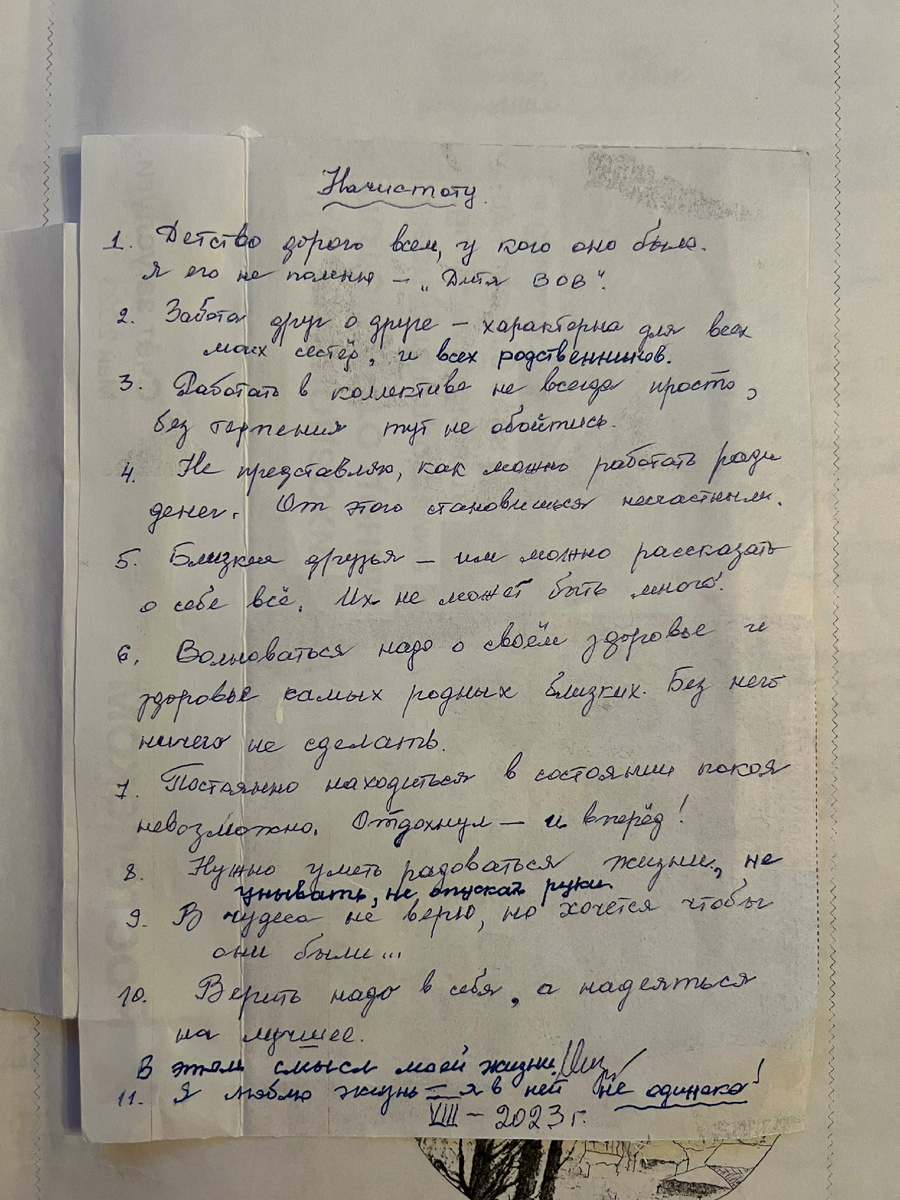 Начистоту.
1. Детство дорого всем, у кого оно было.
Я его не помню – „Дитя ВОВ".
2. Забота друг о друге – характерна для всех
моих сестёр, и всех родственников.
3. Работать в коллективе не всегда просто,
без терпения тут не обойтись.
4. Не представляю, как можно работать ради
денег. От этого становишься несчастным.
5. Близкие друзья – им можно рассказать
о себе всё. Их не может быть много.
6. Волноваться надо о своём здоровье и
здоровье самых родных близких. Без него
ничего не сделать.
7. Постоянно находиться в состоянии покоя
невозможно. Отдохнул – и вперёд!
8. Нужно уметь радоваться жизни, не
унывать, не опускать руки.
9. В чудеса не верю, но хочется чтобы
они были...
10. Верить надо в себя, а надеяться
на лучшее.
В этом смысл моей жизни.
11. Я люблю жизнь – я в ней не одинока!
VIII – 2023 г.